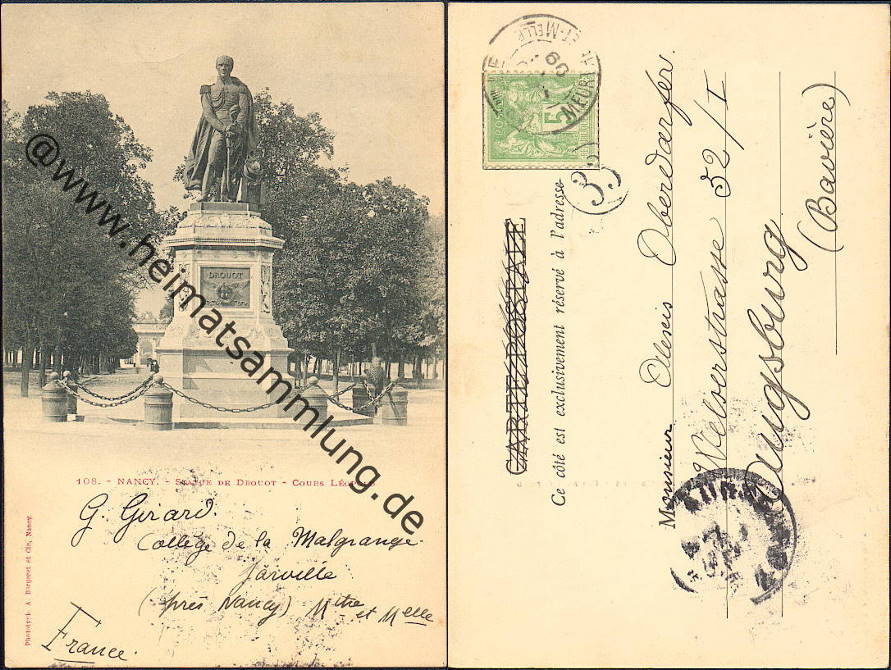 DROUOT
108. - NANCY. - STATUE DE DROUOT - COURS LÉOPOLD
G. Girard
Collège de la Malgrange
Jarville
(près Nancy) Mthe et Melle
France.
Phototyp. A. Bergeret et Cie, Nancy
@www.heimatsammlung.de
5
ET-MELLE
MEURT
CARTE POSTALE
Ce côté est exclusivement réservé à l'adresse
Monsieur Alexis Oberdorfer
Welserstrasse 52/I
Augsburg
(Bavière)